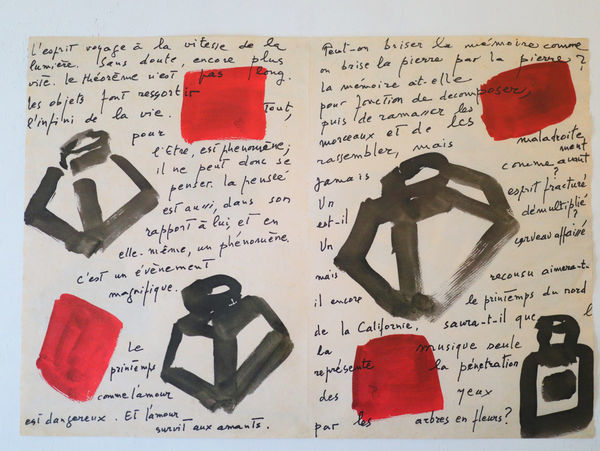 L'esprit voyage à la vitesse de la
lumière. Sans doute, encore plus
vite. Le théorème n'est pas long.
les objets font ressortir
l'infini de la vie. Tout,
pour
l'Etre, est phénomène;
il ne peut donc se
penser. la pensée
est aussi, dans son
rapport à lui, et en
elle-même, un phénomène.
c'est un évènement
magnifique.
Le
printemps
comme l'amour
est dangereux. Et l'amour
survit aux amants.
Peut-on briser la mémoire comme
on brise la pierre par la pierre?
la mémoire at-elle
pour fonction de decomposer,
puis de ramasser les
morceaux et de les
rassembler, mais maladroitement
jamais comme avant?
Un esprit fracturé
est-il démultiplié?
Un cerveau affaissé
mais reconsu aimera-t-
il encore le printemps du nord
de la Californie, saura-t-il que
la musique seule
représente la pénétration
des yeux
par les arbres en fleurs?